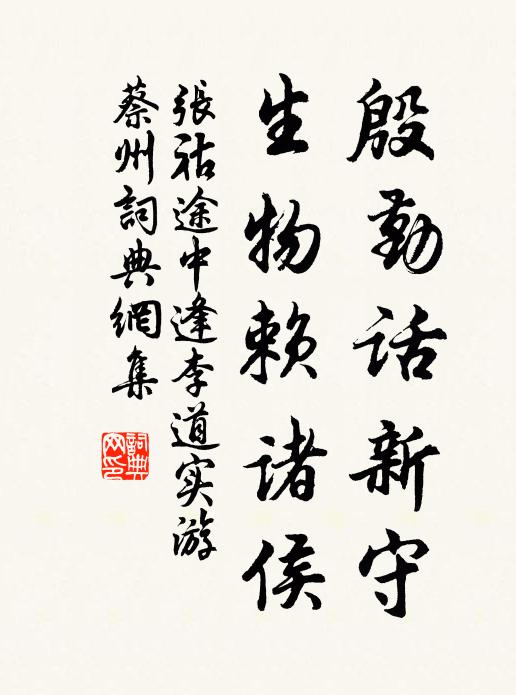 殷勤话新守
生物赖诸侯
張祜途中逢李道实游
蔡州詞典網集
詞典网印